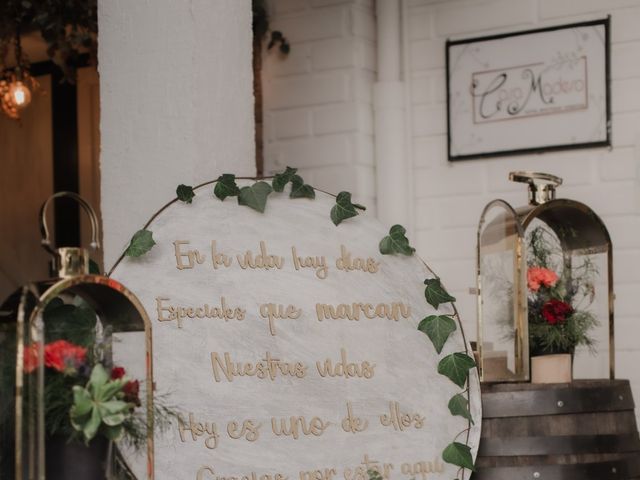 Casa Madero
En la vida hay días
Especiales que marcan
Nuestras vidas
Hoy es uno de ellos
Gracias por estar aquí